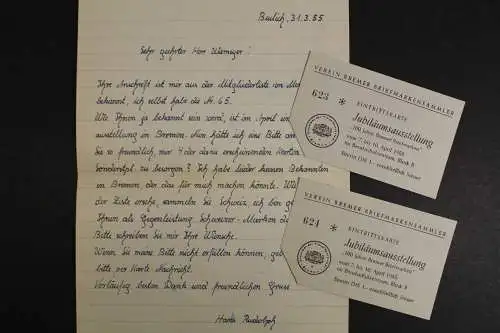 31.3.55
Sehr geehrter Herr
Ihre Anschrift ist mir aus der Mitgliederliste von
bekannt, ich selbst habe die Nr. 65.
Wie Ihnen ja bekannt sein wird, ist im April
ausstellung in Bremen. Nun hätte ich eine Bitte an
Sie so freundlich, mir 4 der dazu erscheinenden Karten
Sonderstpl zu besorgen? Ich habe leider keinen Bekannten
in Bremen, der das für mich machen könnte. Wie
der Liste ersehe, sammeln Sie Schweiz, ich bin
Ihnen als Gegenleistung Schweizer-Marken
Bitte schreiben Sie mir Ihre Wünsche.
Wenn Sie meine Bitte nicht erfüllen können,
bitte per Karte Nachricht.
Vorläufig besten Dank und freundliche Grüsse
Rudolph
VEREIN BREMER BRIEFMARKENSAMMLER
623 *
EINTRITTSKARTE
Jubiläumsausstellung
„100 Jahre Bremer Briefmarken"
vom 7. bis 10. April 1955
im Berufsschulzentrum, Block B
Bereits DM 1.- einschließlich Steuer
VEREIN BREMER BRIEFMARKENSAMMLER
624 *
EINTRITTSKARTE
Jubiläumsausstellung
„100 Jahre Bremer Briefmarken"
vom 7. bis 10. April 1955
im Berufsschulzentrum, Block B
Bereits DM 1.- einschließlich Steuer